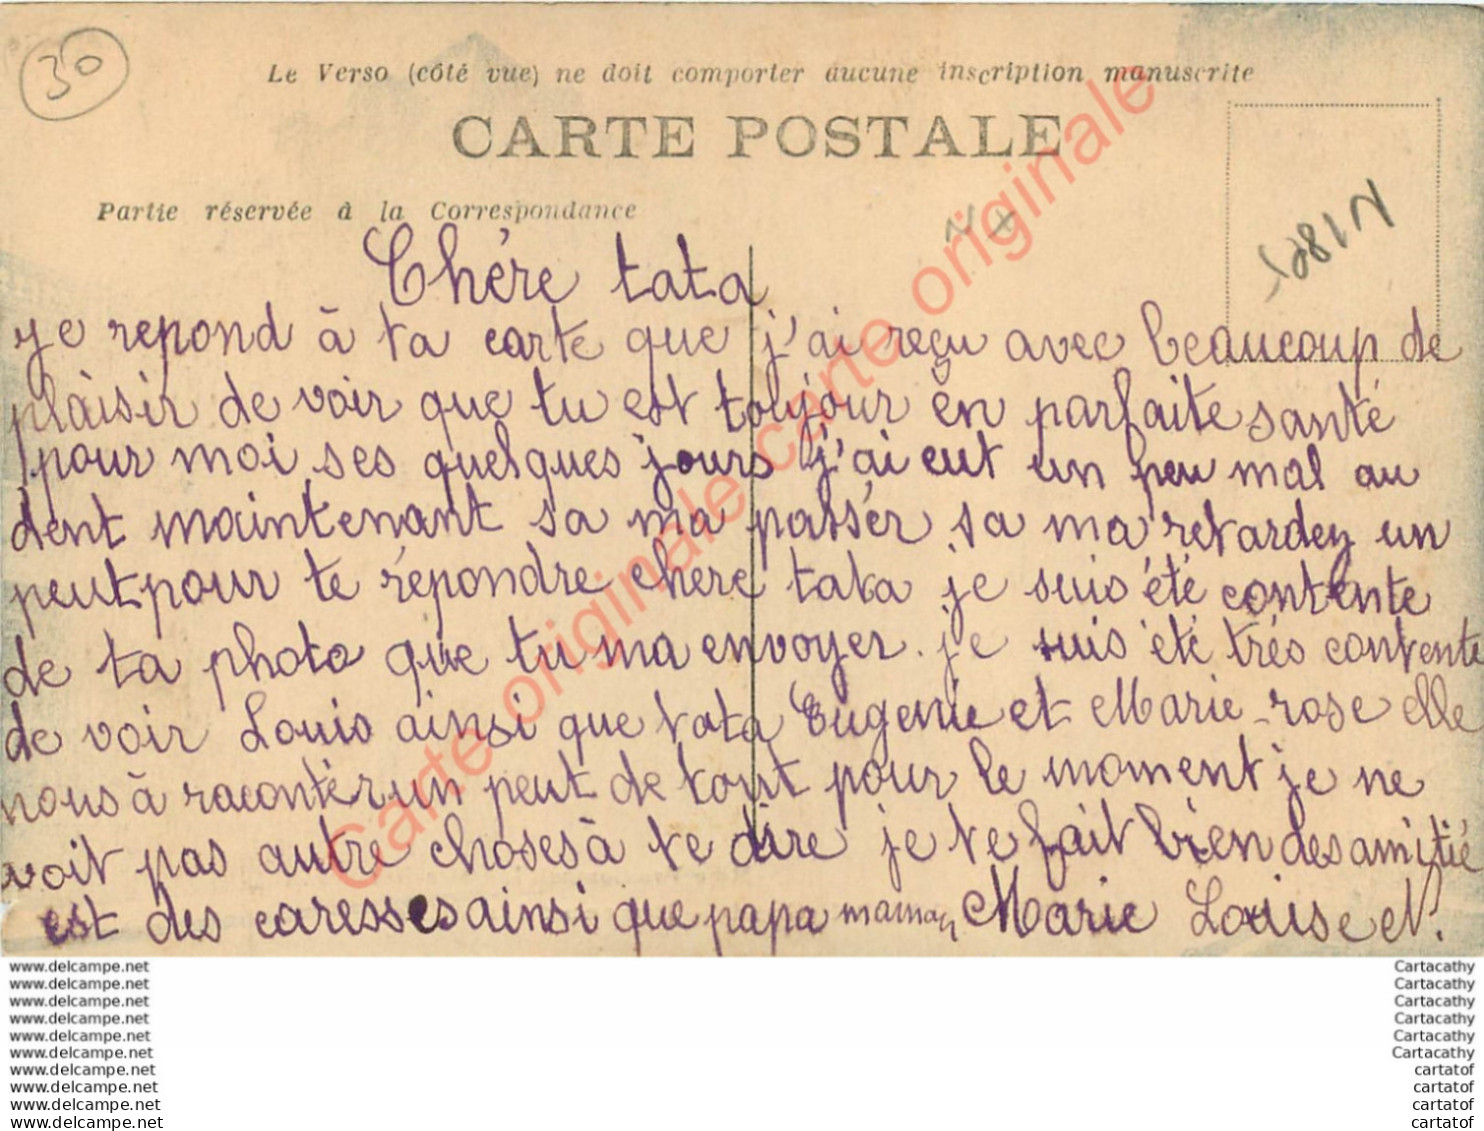 30
Le Verso (côté vue) ne doit comporter aucune inscription manuscrite
CARTE POSTALE
Partie réservée à la Correspondance
Chére tata
je repond à ta carte que j'ai reçu avec beaucoup de
plaisir de voir que tu est toujour en parfaite santé
pour moi ses quelques jours j'ai eut un peu mal au
dent maintenant sa ma passér sa ma retardez un
peut pour te répondre chere tata je suis été contente
de ta photo que tu ma envoyer. je suis été trés contente
de voir Louis ainsi que tata Eugenie et Marie-rose elle
nous à racontér un peut de tout pour le moment je ne
voit pas autre choses à te dire je te fait bien des amitié
est des caresses ainsi que papa maman Marie Louise et N.
Carte originale carte originale
www.delcampe.net
www.delcampe.net
www.delcampe.net
www.delcampe.net
www.delcampe.net
www.delcampe.net
www.delcampe.net
www.delcampe.net
www.delcampe.net
www.delcampe.net
Cartacathy
Cartacathy
Cartacathy
Cartacathy
Cartacathy
Cartacathy
cartatof
cartatof
cartatof
cartatof